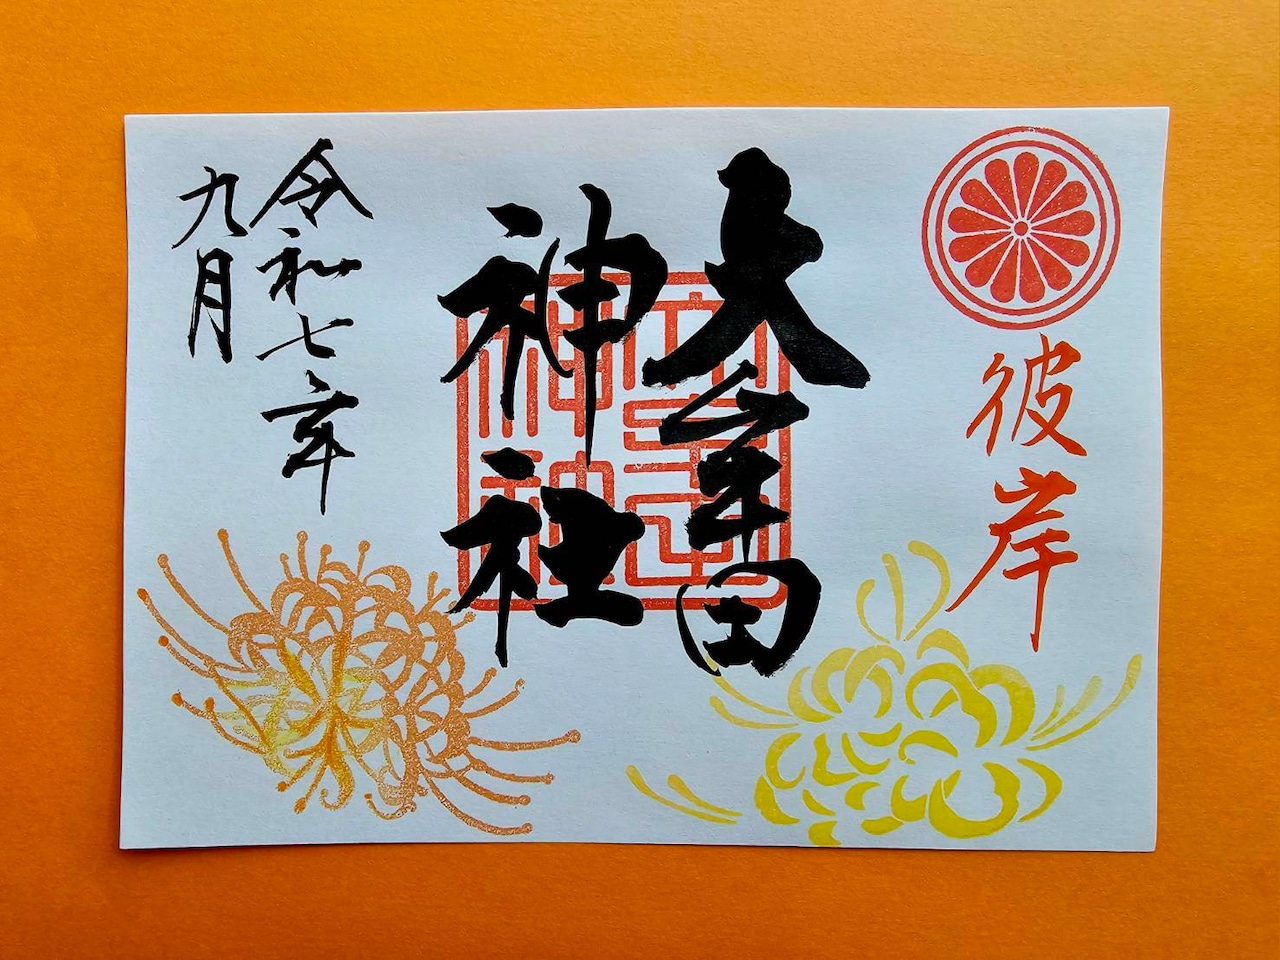 彼岸
大牟田
神社
令和七年
九月